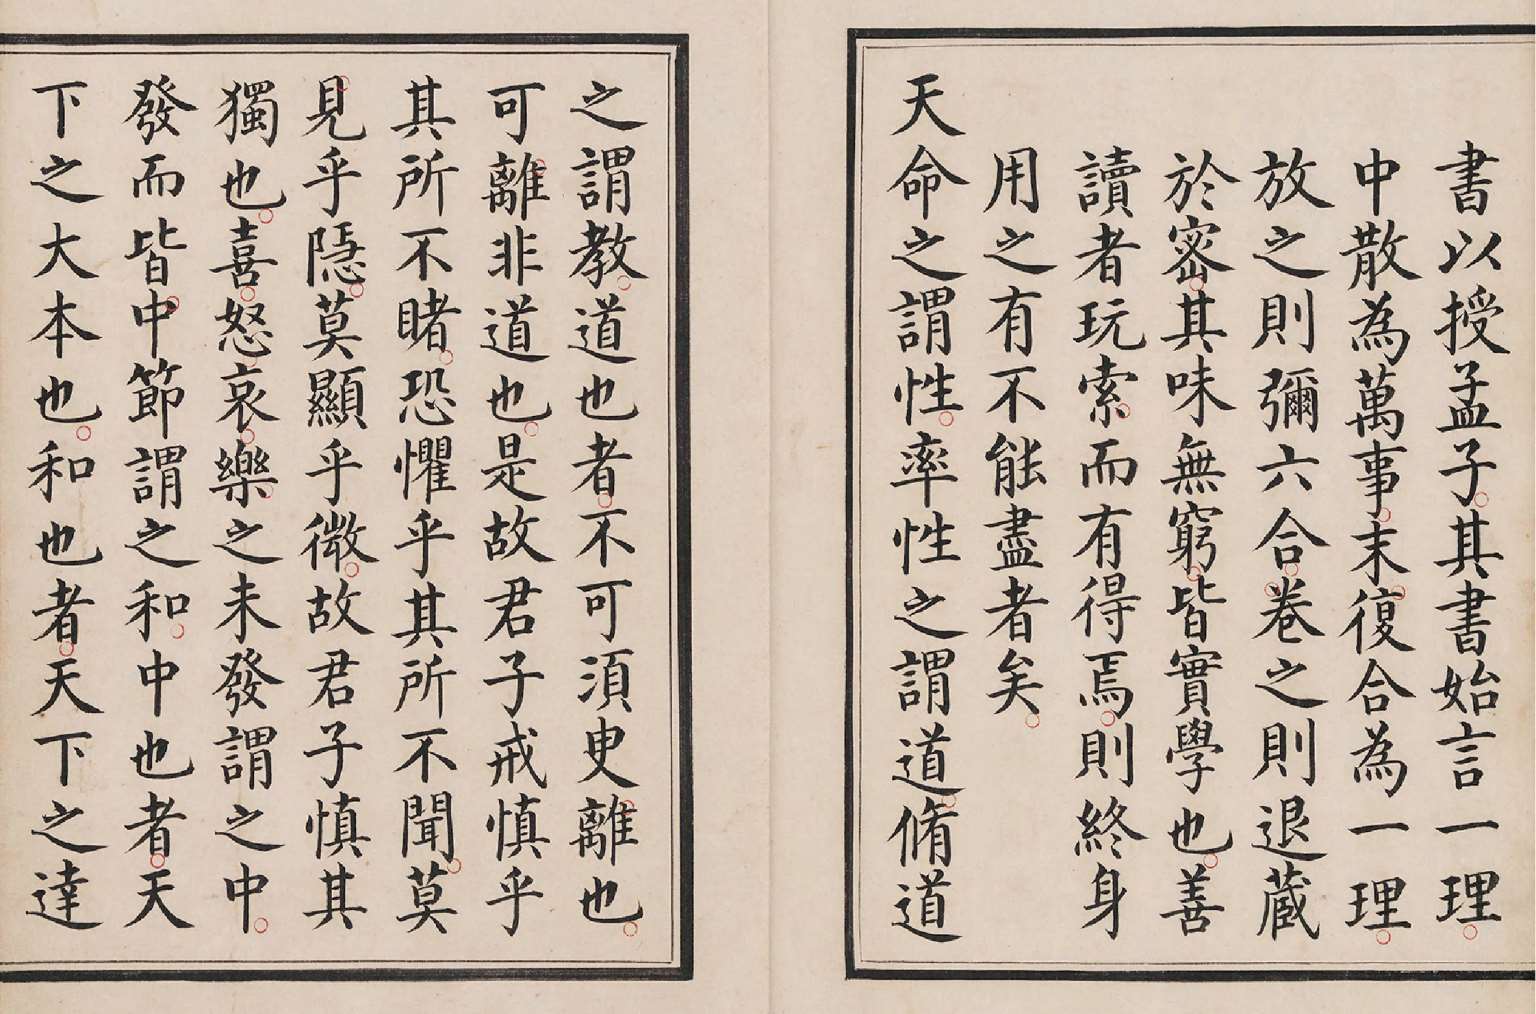 書以授孟子其書始言一理
中散為萬事末復合為一理
放之則彌六合卷之則退藏
於密其味無窮皆實學也善
讀者玩索而有得焉則終身
用之有不能盡者矣
天命之謂性率性之謂道脩道
之謂教道也者不可須臾離也
可離非道也是故君子戒慎乎
其所不睹恐懼乎其所不聞莫
見乎隱莫顯乎微故君子慎其
獨也喜怒哀樂之未發謂之中
發而皆中節謂之和中也者天
下之大本也和也者天下之達